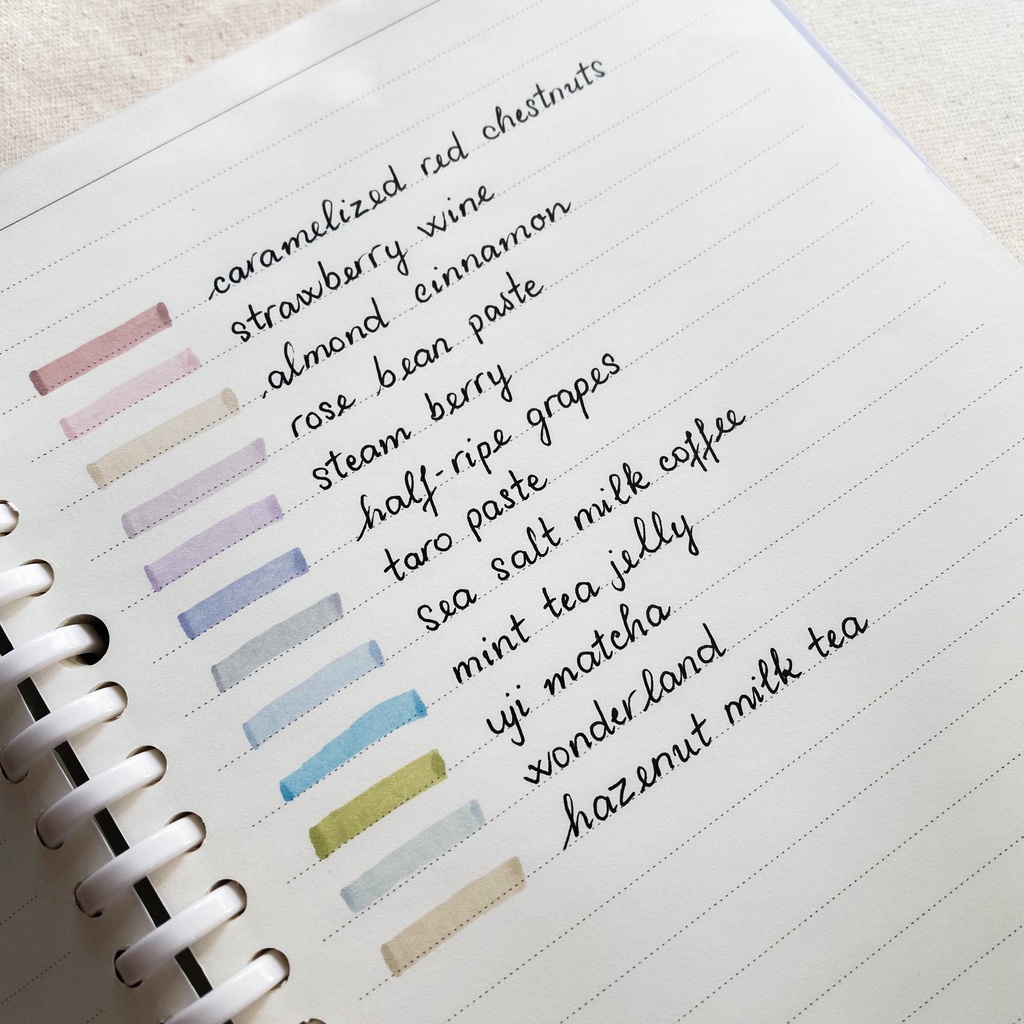 caramelized red chestnuts
strawberry wine
almond cinnamon
rose bean paste
steam berry
half-ripe grapes
taro paste
sea salt milk coffee
mint tea jelly
uji matcha
wonderland
hazenut milk tea